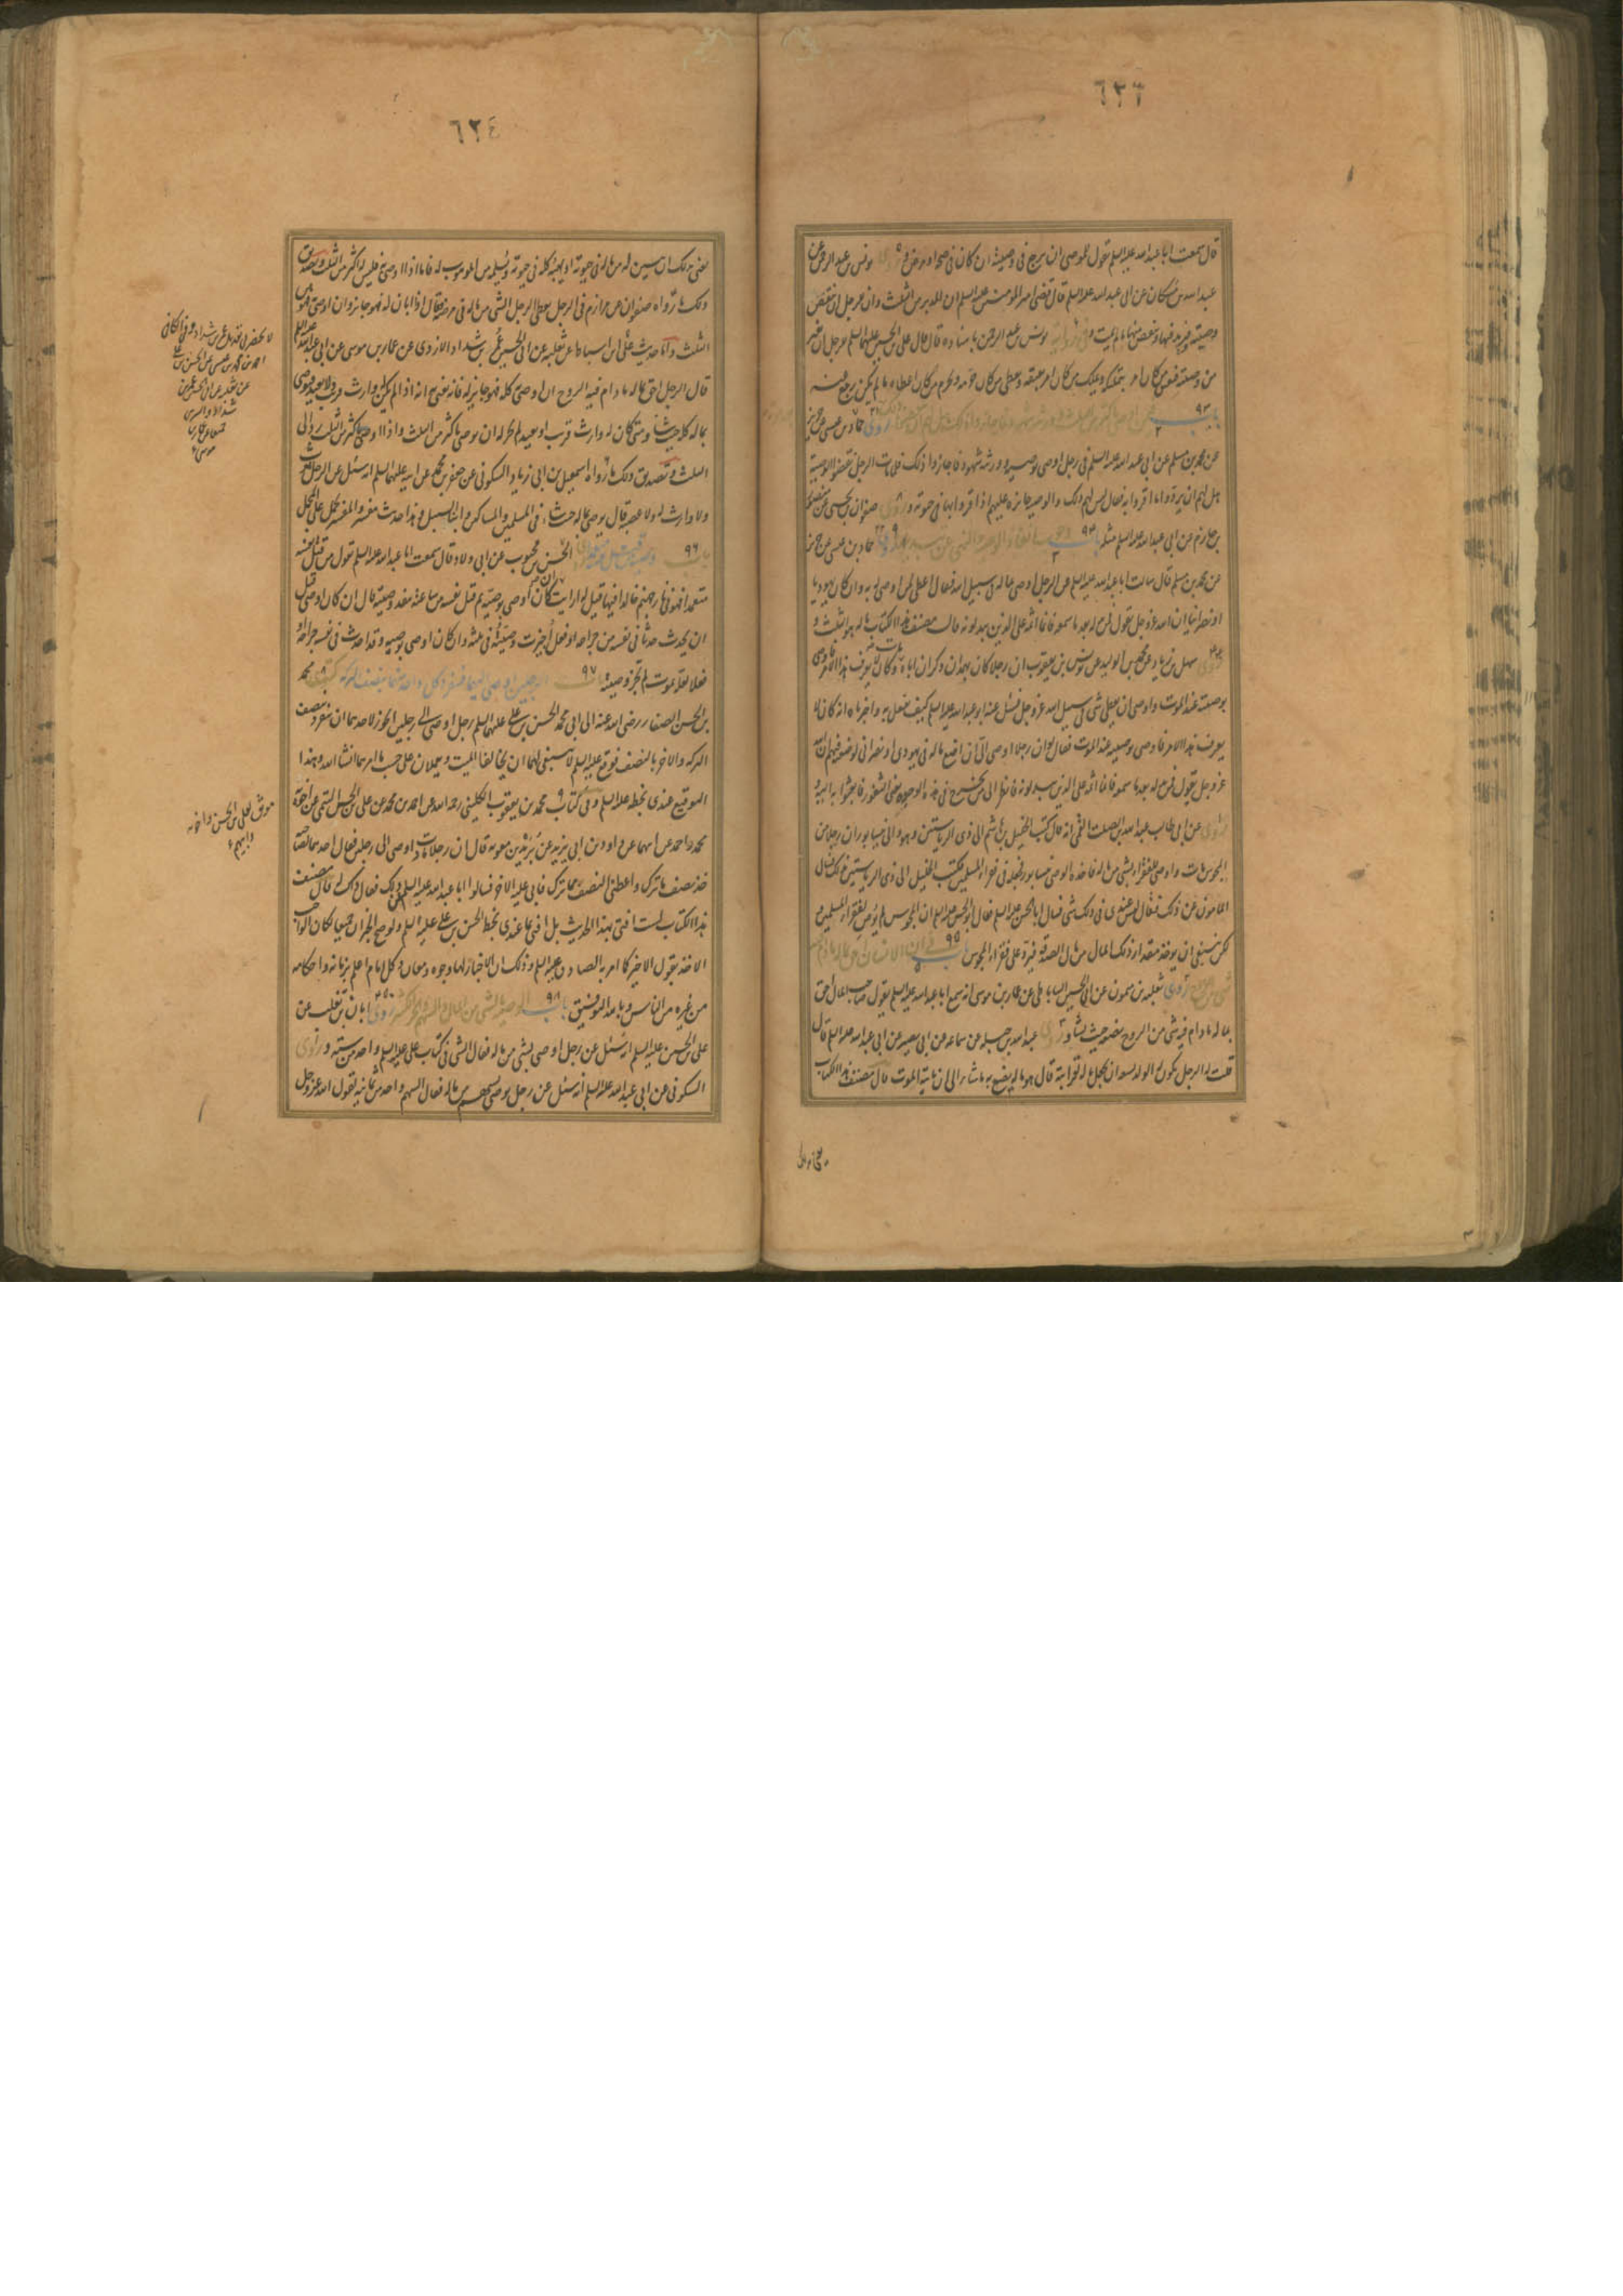 ٦٢٣
قال سمعت ابا عبد الله عليه السلم يقول للموصى ان يرجع فى وصيته ان كان فى صحة او مرض و يونس بن عبد الرحمن عن
عبد الله بن مسكان عن ابى عبد الله عليه السلم قال قضى امير المؤمنين عليه السلم ان المدبر من الثلث وان للرجل ان ينقض
وصيته فيزيد فيها وينقص منها ما لم يمت و يونس بن عبد الرحمن باسناده قال قال على بن الحسين عليهما السلم للرجل ان يغير
من وصيته فيعتق من كان امر بتمليكه ويملك من كان امر بعتقه ويعطى من كان حرمه ويحرم من كان اعطاه ما لم يكن رجع عنه
باب ٩٣ روى حماد بن عيسى عن حريز
عن محمد بن مسلم عن ابى عبد الله عليه السلم فى رجل اوصى بوصية وورثته شهود فاجازوا ذلك فلما مات الرجل نقضوا الوصية
هل لهم ان يردوا ما اقروا به فقال ليس لهم ذلك والوصية جائزة عليهم اذا اقروا بها فى حيوته وروى صفوان بن يحيى عن منصور
بن حازم عن ابى عبد الله عليه السلم مثله باب ٩٤ حماد بن عيسى عن حريز
عن محمد بن مسلم قال سالت ابا عبد الله عليه السلم عن الرجل اوصى بماله فى سبيل الله فقال اعط لمن اوصى له به وان كان يهوديا
او نصرانيا ان الله عز وجل يقول فمن بدله بعد ما سمعه فانما اثمه على الذين يبدلونه قال مصنف هذا الكتاب ماله هو الثلث و
روى سهل بن زياد عن محمد بن الوليد عن يونس بن يعقوب ان رجلا كان بهمذان ذكر ان اباه مات وكان لا يعرف هذا الامر فاوصى
بوصية عند الموت واوصى ان يعطى شئ فى سبيل الله عز وجل فسئل عنه ابو عبد الله عليه السلم كيف يفعل به واخبرناه انه كان لا
يعرف هذا الامر فاوصى بوصية عند الموت فقال لو ان رجلا اوصى الى ان اضع ماله فى يهودى او نصرانى لوضعته فيهم ان الله
عز وجل يقول فمن بدله بعد ما سمعه فانما اثمه على الذين يبدلونه فانظر الى من يخرج فى هذه الوجوه يعنى الثغور فابعثوا به اليه و
روى عن ابى طالب عبد الله بن الصلت القمى انه قال كتب الخليل بن هاشم الى ذى الرياستين وهو والى نيسابور ان رجلا من
المجوس مات واوصى للفقراء بشئ من ماله فاخذه الوصى بنيسابور فجعله فى فقراء المسلمين فكتب الخليل الى ذى الرياستين بذلك فسال
المامون عن ذلك فقال ليس عندى فى ذلك شئ فسال ابا الحسن عليه السلم فقال ابو الحسن عليه السلم ان المجوسى لم يوص لفقراء المسلمين و
لكن ينبغى ان يؤخذ مقدار ذلك المال من مال الصدقة فيرد على فقراء المجوس باب ٩٥
روى ثعلبة بن ميمون عن ابى الحسين الساباطى عن عمار بن موسى انه سمع ابا عبد الله عليه السلم يقول صاحب المال احق
بماله ما دام فيه شئ من الروح يضعه حيث يشاء وروى عبد الله بن جبلة عن سماعة عن ابى بصير عن ابى عبد الله عليه السلم قال
قلت له الرجل يكون له الولد ايسعه ان يجعل ماله لقرابته قال هو ماله يصنع به ما شاء الى ان ياتيه الموت قال مصنف هذا الكتاب
يعنى بذلك
٦٢٤
يعنى بذلك ان يبين به من ماله فى حيوته او يهبه كله فى حيوته ويسلمه من الموهوب له فاما اذا اوصى به فليس له اكثر من الثلث وتصديق
ذلك ما رواه صفوان عن مرازم فى الرجل يعطى الرجل الشئ من ماله فى مرضه فقال اذا ابان له فهو جائز وان اوصى به فهو من
الثلث واما حديث على بن اسباط عن ثعلبة عن ابى الحسين عمر بن شداد الازدى عن عمار بن موسى عن ابى عبد الله عليه السلم
قال الرجل احق بماله ما دام فيه الروح ان اوصى به كله فهو جائز له فانه يعنى به انه اذا لم يكن له وارث قريب ولا بعيد فيوصى
بماله كله حيث شاء ومتى كان له وارث قريب او بعيد لم يجز له ان يوصى باكثر من الثلث واذا اوصى باكثر من الثلث رد الى
الثلث وتصديق ذلك ما رواه اسمعيل بن ابى زياد السكونى عن جعفر بن محمد عن ابيه عليهما السلم انه سئل عن الرجل يموت
ولا وارث له ولا عصبة قال يوصى بماله حيث شاء فى المسلمين والمساكين وابن السبيل وهذا حديث مفسر والمفسر يحمل على المجمل
باب ٩٦ الحسن بن محبوب عن ابى ولاد قال سمعت ابا عبد الله عليه السلم يقول من قتل نفسه
متعمدا فهو فى نار جهنم خالدا فيها قيل له ارايت ان كان اوصى بوصية ثم قتل نفسه من ساعته تنفذ وصيته قال ان كان اوصى قبل
ان يحدث حدثا فى نفسه من جراحة او فعل اجيزت وصيته فى ثلثه وان كان اوصى بوصية وقد احدث فى نفسه جراحة او
فعلا لعله يموت لم تجز وصيته باب ٩٧ الرجلين اوصى اليهما فينفرد كل واحد منهما بنصف التركة كتب محمد
بن الحسن الصفار رضى الله عنه الى ابى محمد الحسن بن على عليهما السلم رجل اوصى الى رجلين ايجوز لاحدهما ان ينفرد بنصف
التركة والاخر بالنصف فوقع عليه السلم لا ينبغى لهما ان يخالفا الميت ويعملان على حسب ما امرهما انشاء الله وهذا
التوقيع عندى بخطه عليه السلم وفى كتاب محمد بن يعقوب الكلينى رحمه الله عن احمد بن محمد عن على بن الحسن الميثمى عن اخويه
محمد واحمد عن ابيهما عن داود بن ابى يزيد عن بريد بن معوية قال ان رجلا مات واوصى الى رجلين فقال احدهما لصاحبه
خذ نصف ما ترك واعطنى النصف مما ترك فابى عليه الاخر فسالوا ابا عبد الله عليه السلم عن ذلك فقال ذلك له قال مصنف
هذا الكتاب لست افتى بهذا الحديث بل افتى بما عندى بخط الحسن بن على عليه السلم ولو صح الخبران جميعا لكان الواجب
الاخذ بقول الاخير كما امر به الصادق عليه السلم وذلك ان الاخبار لها وجوه ومعان وكل امام اعلم بزمانه واحكامه
من غيره من الناس وبالله التوفيق باب ٩٨ الوصية بالشئ من المال والسهم والجزء والكثير روى ابان بن تغلب عن
على بن الحسين عليه السلم انه سئل عن رجل اوصى بشئ من ماله فقال الشئ فى كتاب على عليه السلم واحد من ستة وروى
السكونى عن ابى عبد الله عليه السلم انه سئل عن رجل يوصى بسهم من ماله فقال السهم واحد من ثمانية لقول الله عز وجل